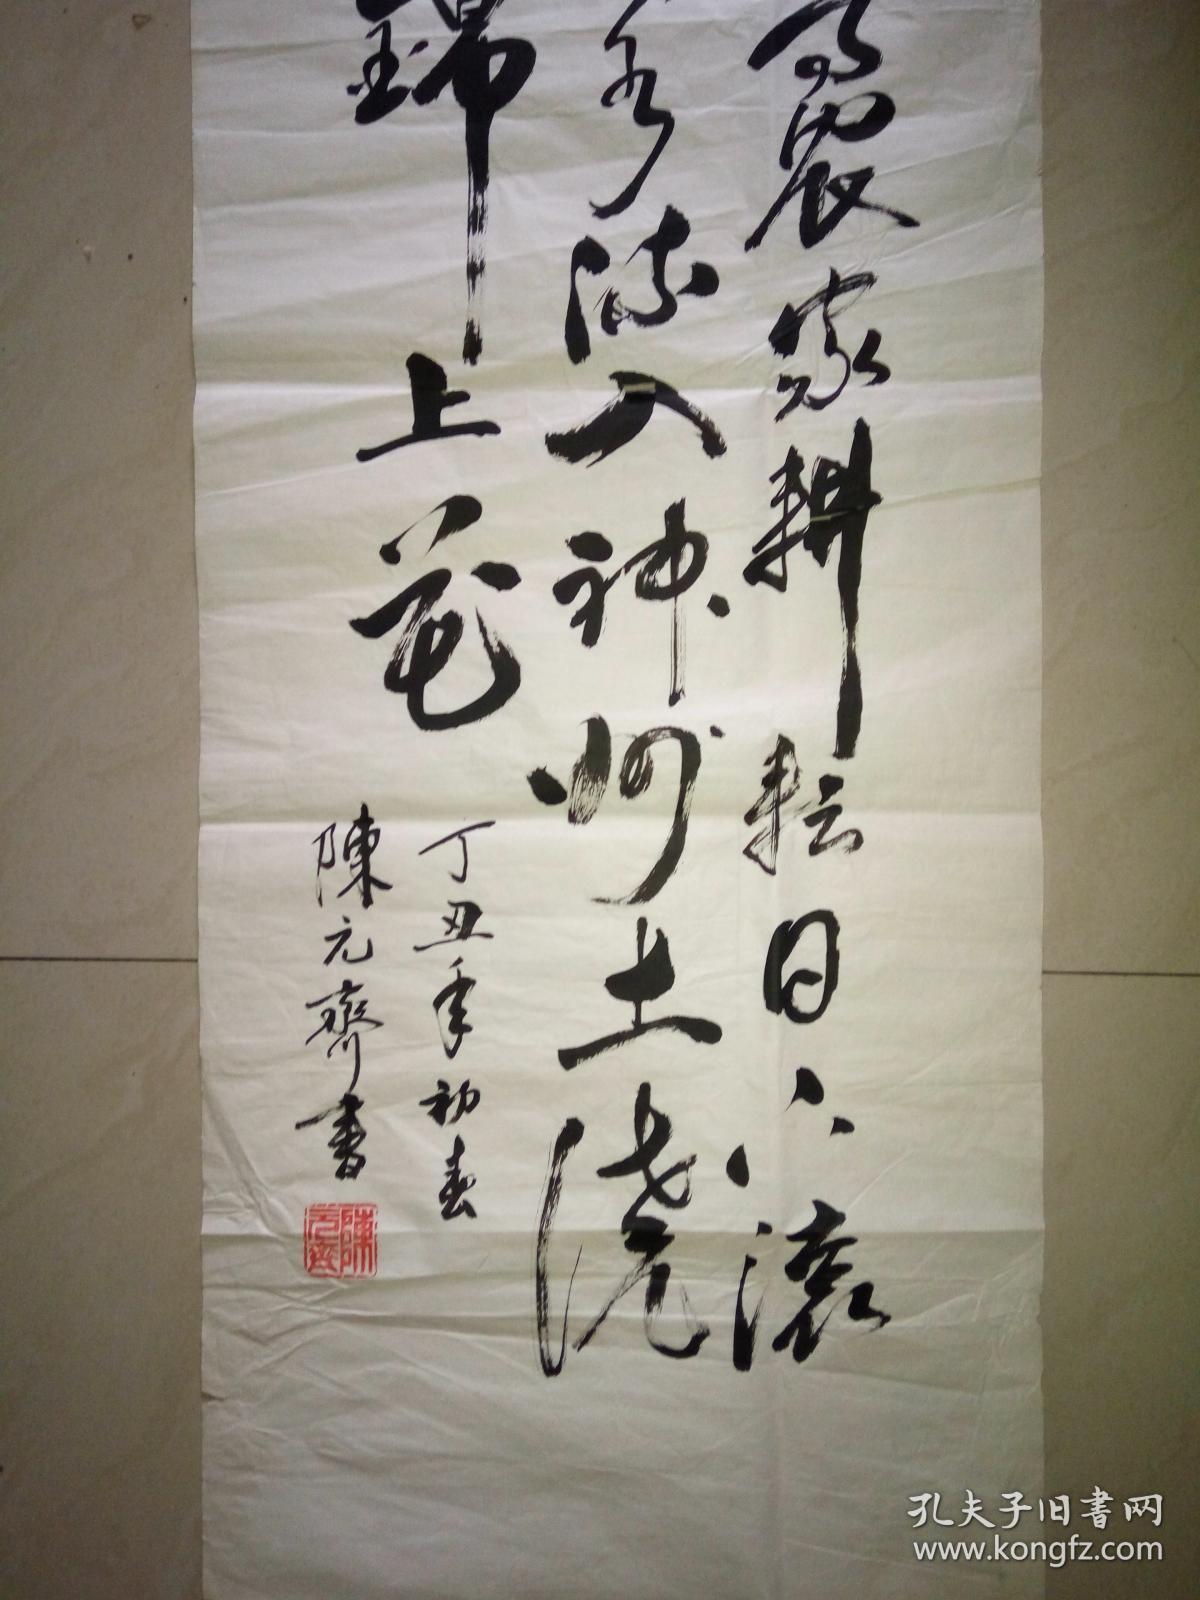 農家耕耘日日滾
流入神州土澆
錦上花
丁丑年初春
陳元齊書
陳元齊
孔夫子旧書网
www.kongfz.com